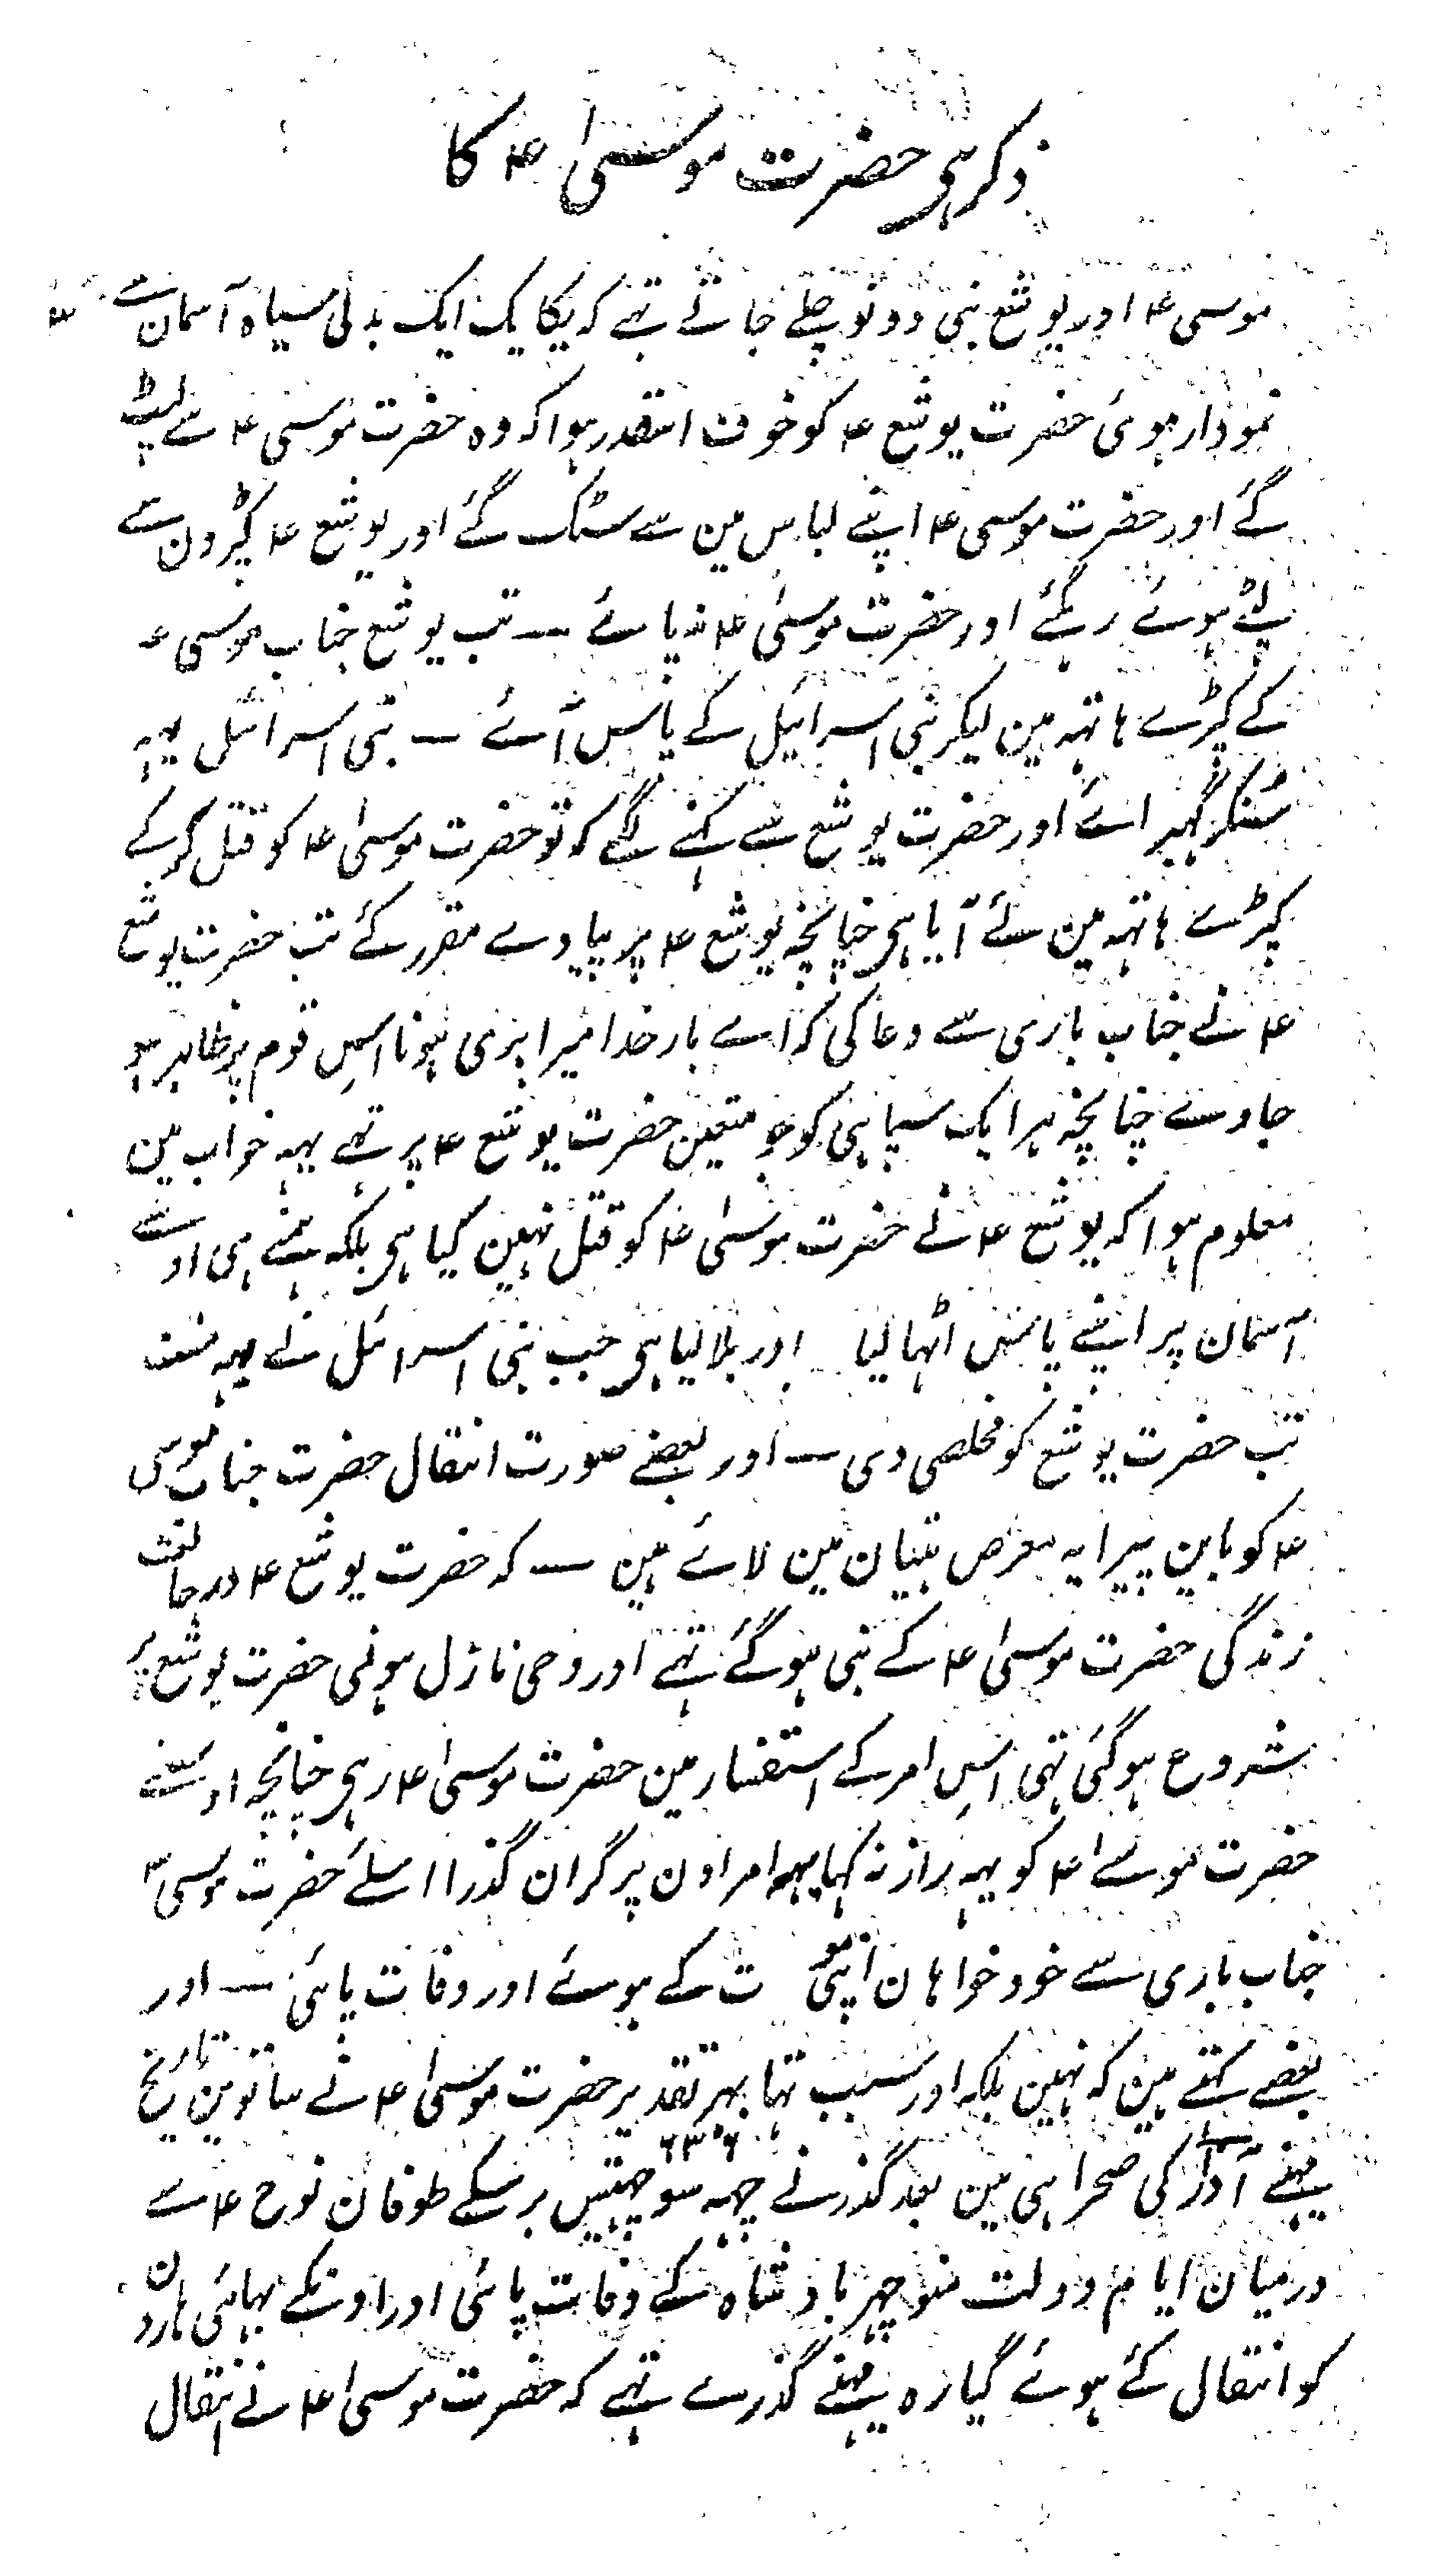 ذکر ہی حضرت موسیٰ ۴ کا
موسی ۴ اور یوشع نبی دونو چلے جاتے تہے کہ یکایک ایک بدلی سیاہ آسمان سے
نمودار ہوئی حضرت یوشع ۴ کو خوف اسقدر ہوا کہ وہ حضرت موسی ۴ سے لپٹ
گئے اور حضرت موسی ۴ اپنے لباس مین سے سٹک گئے اور یوشع ۴ کپڑون سے
لپٹے ہوئے رہگئے اور حضرت موسیٰ ۴ نہ پائے — تب یوشع جناب موسی ۴
کے کپڑے ہاتہہ مین لیکر بنی اسرائیل کے پاس آئے — بنی اسرائیل یہہ
سُنکر گہبرائے اور حضرت یوشع سے کہنے لگے کہ تو حضرت موسیٰ ۴ کو قتل کرکے
کپڑے ہاتہہ مین لئے آیا ہی چنانچہ یوشع ۴ پر پیادے مقرر کئے تب حضرت یوشع
۴ نے جناب باری سے دعا کی کہ اے بار خدا میرا بری ہونا اسِ قوم پر ظاہر ہو
جاوے چنانچہ ہر ایک سپاہی کو جو متعین حضرت یوشع ۴ پر تہے یہہ خواب مین
معلوم ہوا کہ یوشع ۴ نے حضرت موسیٰ ۴ کو قتل نہین کیا ہی بلکہ ہمنے ہی اوسے
آسمان پر اپنے پاس اٹہا لیا اور بلا لیا ہی جب بنی اسرائل نے یہہ سنا
تب حضرت یوشع کو مخلصی دی — اور بعضے صورت انتقال حضرت جناب موسی
۴ کو باین پیرایہ معرض بیان مین لائے ہین — کہ حضرت یوشع ۴ در حالت
زندگی حضرت موسیٰ ۴ کے نبی ہوگئے تہے اور وحی نازل ہونی حضرت یوشع پر
شروع ہوگئی تہی اسِ امر کے استفسار مین حضرت موسیٰ ۴ رہی چنانچہ اوسنے
حضرت موسےٰ ۴ کو یہہ راز نہ کہا یہہ امر اون پر گران گذرا اسلئے حضرت موسی ۴
جناب باری سے خود خواہان اپنی موت کے ہوئے اور وفات پائی — اور
بعضے کہتے ہین کہ نہین بلکہ اور سبب تہا بہر تقدیر حضرت موسیٰ ۴ نے ساتوین تاریخ
مہینے آذار کی صحرا ہی مین بعد گذرنے چہہ سو چہتیس برسکے طوفان نوح ۴ سے
درمیان ایام دولت منوچہر بادشاہ کے وفات پائی اور اونکے بہائی ہارون
کو انتقال کئے ہوئے گیارہ مہینے گذرے تہے کہ حضرت موسیٰ ۴ نے انتقال